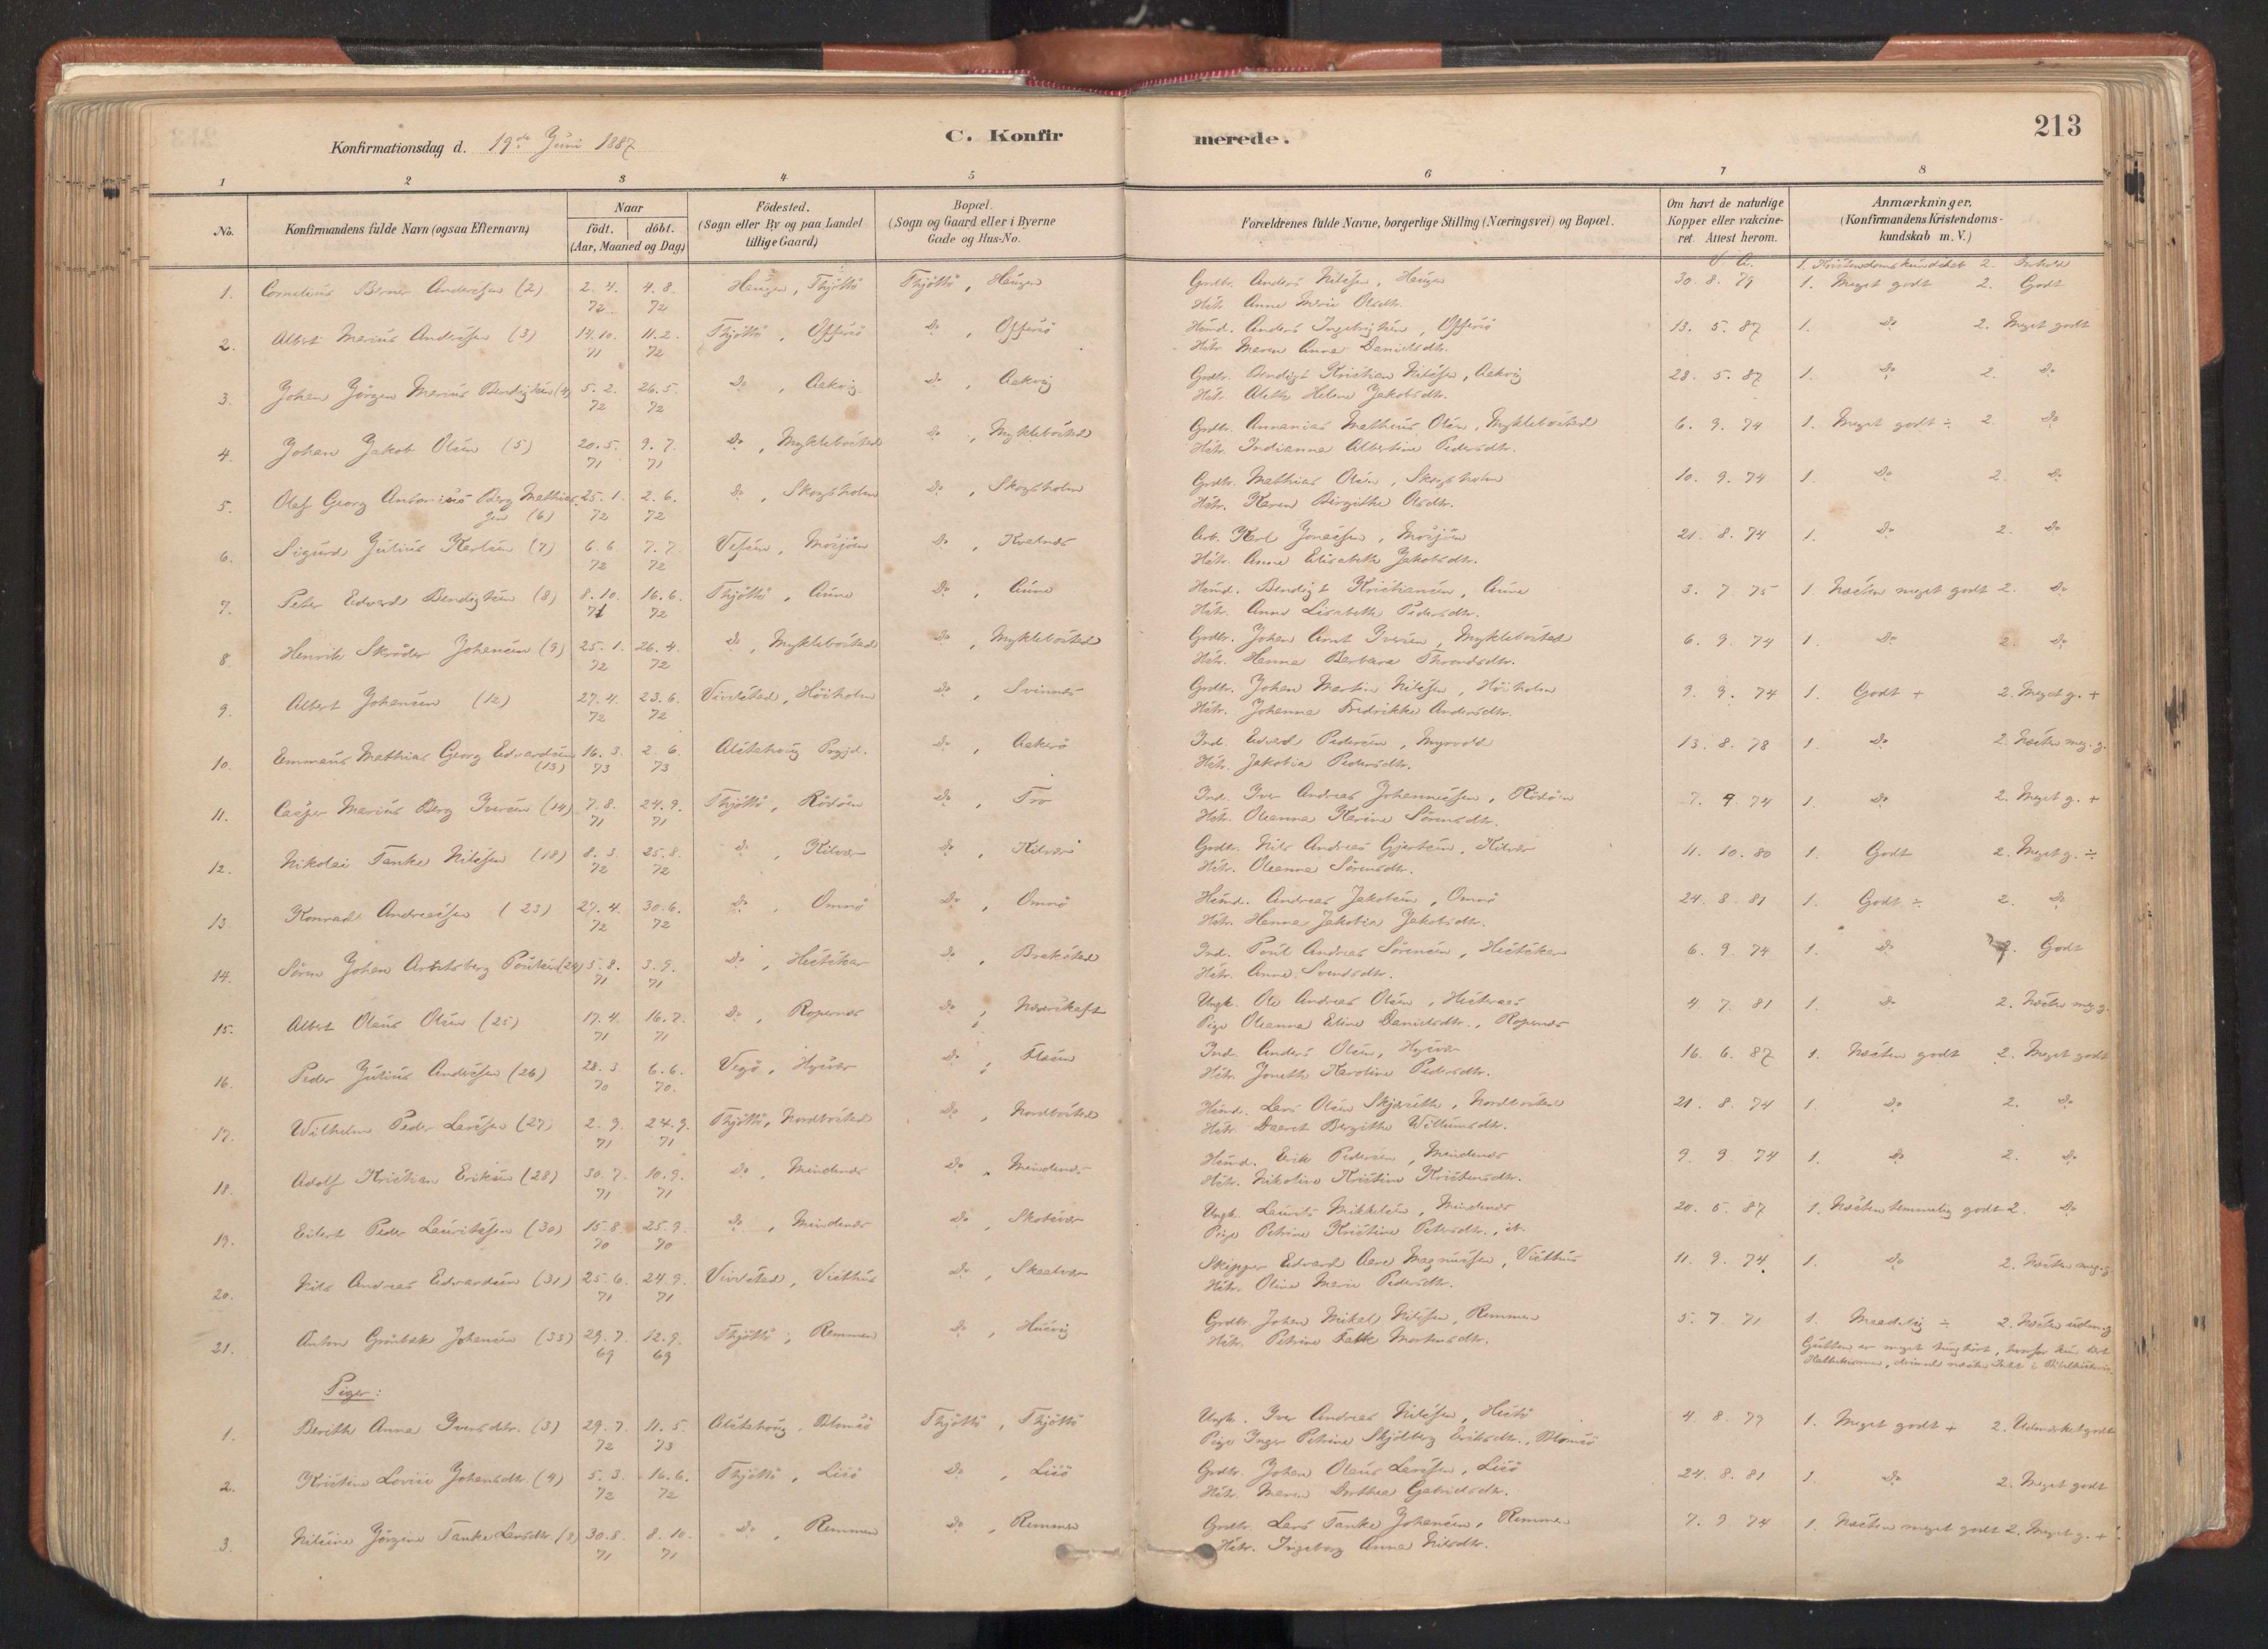 213
C. Konfirmerede.
Konfirmationsdag d. 19de Juni 1887
1 2 3 4 5 6 7 8
No.
Konfirmandens fulde Navn (ogsaa Efternavn)
Naar
födt. döbt.
(Aar, Maaned og Dag)
Födested.
(Sogn eller By og paa Landet
tillige Gaard)
Bopæl.
(Sogn og Gaard eller i Byerne
Gade og Hus-No.
Forældrenes fulde Navne, borgerlige Stilling (Næringsvei) og Bopæl.
Om havt de naturlige
Kopper eller vakcine-
ret. Attest herom.
Anmærkninger.
(Konfirmandens Kristendoms-
kundskab m. V.)
V. A. 1. Kristendomskundskab 2. Forhold
1. Cornelius Berner Andersen (2) 2. 4. 72 4. 8. 72 Haugen, Thjøttø Thjøttø, Haugen Grdbr. Anders Nilsen, Haugen 30. 8. 79 1. Meget godt 2. Godt
Hstr. Anne Marie Olsdtr.
2. Albert Marius Andersen (3) 14. 10. 71 11. 2. 72 Thjøttø, Offersø Do, Offersø Husmd. Anders Ingebrigtsen, Offersø 13. 5. 87 1. Do 2. Meget godt
Hstr. Maren Anna Danielsdtr.
3. Johan Jørgen Marius Bendigtsen (4) 5. 2. 72 26. 5. 72 Do, Aakvig Do, Aakvig Grdbr. Bendigt Kristian Nilsen, Aakvig 28. 5. 87 1. Do 2. Do
Hstr. Aleth Helene Jakobsdtr.
4. Johan Jakob Olsen (5) 20. 5. 71 9. 7. 71 Do, Myklebostad Do, Myklebostad Grdbr. Annanias Matheus Olsen, Myklebostad 6. 9. 74 1. Meget godt ÷ 2. Do
Hstr. Indianna Albertine Pedersdtr.
5. Olaf Georg Antonius Berg Mathias- 25. 1. 72 2. 6. 72 Do, Skogsholm Do, Skogsholm Grdbr. Mathias Olsen, Skogsholm 10. 9. 74 1. Do 2. Do
sen (6) Hstr. Karen Birgithe Olsdtr.
6. Sigurd Julius Karlsen (7) 6. 6. 72 7. 7. 72 Vefsen, Mosjøen Do, Kvalnes Arb. Karl Jonassen, Mosjøen 21. 8. 74 1. Do 2. Do
Hstr. Anne Elisabeth Jakobsdtr.
7. Peter Edvard Bendigtsen (8) 8. 10. 71 16. 6. 72 Thjøttø, Aune Do, Aune Husmd. Bendigt Kristiansen, Aune 3. 7. 75 1. Næsten meget godt 2. Do
Hstr. Anne Lisabeth Pedersdtr.
8. Henrik Skrøder Johansen (9) 25. 1. 72 26. 4. 72 Do, Myklebostad Do, Myklebostad Grdbr. Johan Arnt Iversen, Myklebostad 6. 9. 74 1. Do 2. Do
Hstr. Hanna Barbara Throndsdtr.
9. Albert Johansen (12) 27. 4. 72 23. 6. 72 Vivelstad, Høiholm Do, Svinnes Grdbr. Johan Martin Nilsen, Høiholm 9. 9. 74 1. Godt + 2. Meget g. +
Hstr. Johanna Fredrikke Andersdtr.
10. Emmaus Mathias Georg Edvardsen (13) 16. 3. 73 2. 6. 73 Alstahoug Prgjd. Do, Aakerø Ind. Edvard Pedersen, 13. 8. 78 1. Do 2. Næsten meg. g.
Hstr. Jakobia Pedersdtr.
11. Casper Marius Berg Iversen (14) 7. 8. 71 24. 9. 71 Thjøttø, Rødøen Do, Tro Ind. Iver Andreas Johannessen, Rødøen 7. 9. 74 1. Do 2. Meget g. +
Hstr. Oleanna Karine Sørensdtr.
12. Nikolai Tanke Nilsen (18) 8. 3. 72 25. 8. 72 Do, Kilvær Do, Kilvær Grdbr. Nils Andreas Gjertsen, Kilvær 11. 10. 80 1. Godt 2. Meget g. ÷
Hstr. Oleanna Sørensdtr.
13 Konrad Andreassen (23) 27. 4. 72 30. 6. 72 Do, Omnø Do, Omnø Husmd. Andreas Jakobsen, Omnø 24. 8. 81 1. Godt ÷ 2. Do
Hstr. Hanna Jakobia Jakobsdtr.
14. Søren Johan Poulsen (24) 5. 8. 71 3. 9. 71 Do, Hestskar Do, Brakstad Ind. Poul Andreas Sørensen, Hestskar 6. 9. 74 1. Do 2. Godt
Hstr. Anne Svendsdtr.
15. Albert Olaus Olsen (25) 17. 4. 71 16. 7. 71 Do, Ropernes Do, Ungk. Ole Andreas Olsen, 4. 7. 81 1. Do 2. Næsten meg g.
Pige Oleanna Eline Danielsdtr., Ropernes
16. Peder Julius Andersen (26) 28. 3. 70 6. 6. 70. Vegø, Hysvær Do, Flasen Ind. Anders Olsen, Hysvær 16. 6. 87 1. Næsten godt 2. Meget godt
Hstr. Joneth Karoline Pedersdtr.
17. Wilhelm Peder Larssen (27) 2. 9. 71 24. 9. 71 Thjøttø, Nordbostad Do, Nordbostad Husmd. Lars Olsen Skjæseth, Nordbostad 21. 8. 74 1. Do 2. Do
Hstr. Daaret Bergithe Willumsdtr.
18. Adolf Kristian Eriksen (28) 30. 7. 71 10. 9. 71 Do, Mindenes Do, Mindenes Husmd. Erik Pedersen, Mindenes 9. 9 74 1. Do 2. Do
Hstr. Nikoline Kristine Kristensdtr.
19. Eilert Peder Lauritssen (30) 15. 8. 70 25. 9. 70 Do, Mindenes Do, Skotsvær Ungk. Laurits Mikkelsen, Mindenes 20. 5. 87 1. Næsten temmelig godt 2. Do
Pige Petrine Kristine Petersdtr., st.
20. Nils Andreas Edvardsen (31) 25. 6. 71 24. 9. 71 Vivelstad, Visthus Do, Skaalvær Skipper Edvard Aare Magnussen, Visthus 11. 9. 74. 1. Do 2. Næsten meg. g
Hstr. Oline Marie Pedersdtr.
21. Anton Grønbek Johansen (33) 29. 7. 69 12. 9. 69 Thjøttø, Remmen Do, Husvig Grdbr. Johan Mikal Nilsen, Remmen 5. 7. 71 1. Maadelig ÷ 2. Næsten udm. g
Hstr. Petrine Falk Mortensdtr. Gutten er meget tunghørt, hvorfor kun lært
Piger:
1. Berith Anna Iversdtr. (3) 29. 7. 72 11. 5. 73 Alstahoug, Blomsø Thjøttø, Thjøttø Ungk. Iver Andreas Nilsen, Hestø 4. 8. 79 1. Meget godt + 2. Udmærket godt
Pige Inger Petrine Skjölberg Eriksdtr., Blomsø
2. Kristine Lovise Johansdtr. (4) 5. 3. 72 16. 6. 72 Thjøttø, Lisø Do, Lisø Grdbr. Johan Olaus Larssen, Lisø 24. 8. 81 1. Do 2. Meget godt
Hstr. Maren Dorthea Gabrielsdtr.
3. Nilsine Jørgine Tanke Larsdtr (8) 30. 8. 71 8. 10. 71 Do, Remmen Do, Remmen Grdbr. Lars Tanke Johansen, Remmen 7. 9 74 1. Næsten meget godt 2. Meget g. +
Hstr. Ingeborg Anna Nilsdtr.